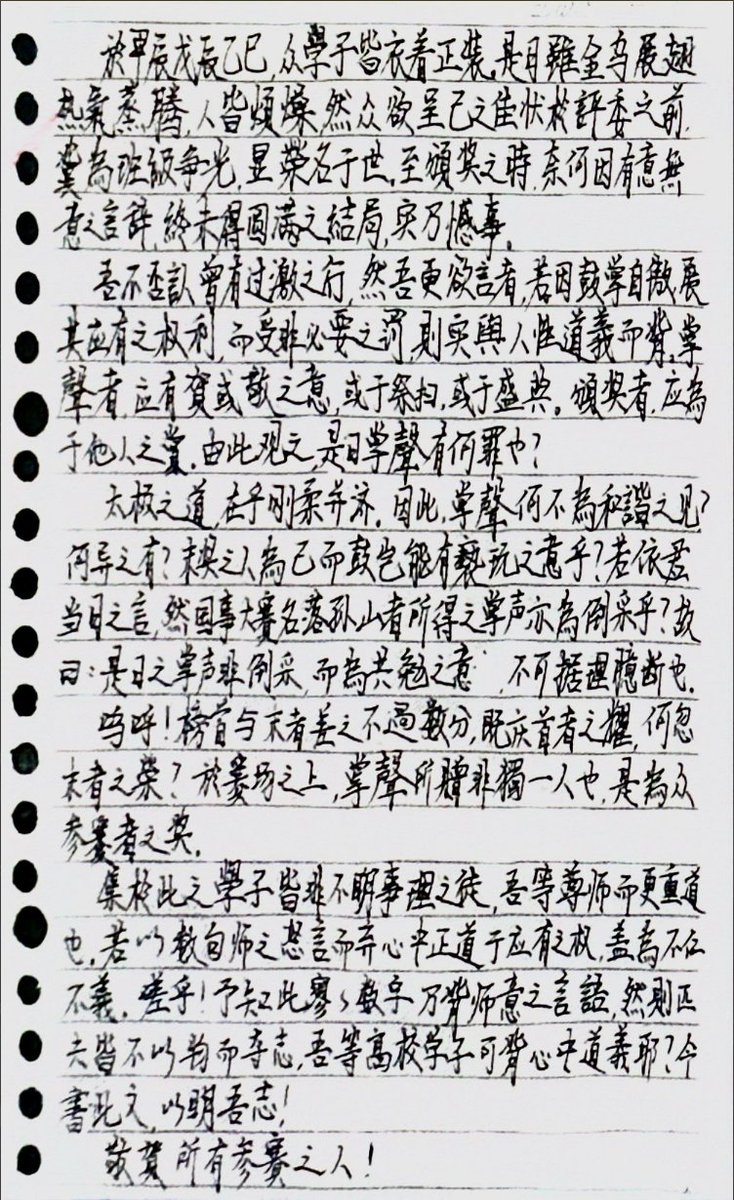 於甲辰戊辰乙巳,众學子皆衣着正裝。是日雖金乌展翅
热氣蒸腾,人皆煩燥,然众欲呈己之佳状於評委之前,
冀為班級争光,显荣名于世。至頒奖之時,奈何因有意無
意之言辞,終未得圆满之结局,实乃憾事。
吾不否認曾有过激之行,然吾更欲言者,若因鼓掌自傲展
其应有之权利,而受非必要之罚,則实與人性道義而背。掌
聲者,应有賀或敬之意,或于祭扫,或于盛典。頒奖者,应為
于他人之赏。由此观之,是日掌聲有何罪也?
太极之道,在乎刚柔并济。因此,掌聲何不為和諧之见?
何异之有?末奖之人為己而鼓岂能有褻玩之意乎?若依君
当日之言,然国事大赛名落孙山者所得之掌声亦為倒采乎?故
曰:是日之掌声非倒采,而為共勉之意,不可据理臆断也。
呜呼!榜首与末者差之不過数分,既庆首者之耀,何忽
末者之荣?於赛场之上,掌聲所赠非獨一人也,是為众
参賽者之奖。
集於此之學子皆非不明事理之徒,吾等尊师而更重道
也,若以数句师之怒言而弃心中正道于应有之权,盖為不仁
不義。嗟乎!予知此寥々数字乃背师意之言語,然則匹
夫皆不以钧而夺志,吾等高校学子可背心中道義耶?今
書此文,以明吾志!
敬賀所有参賽之人!